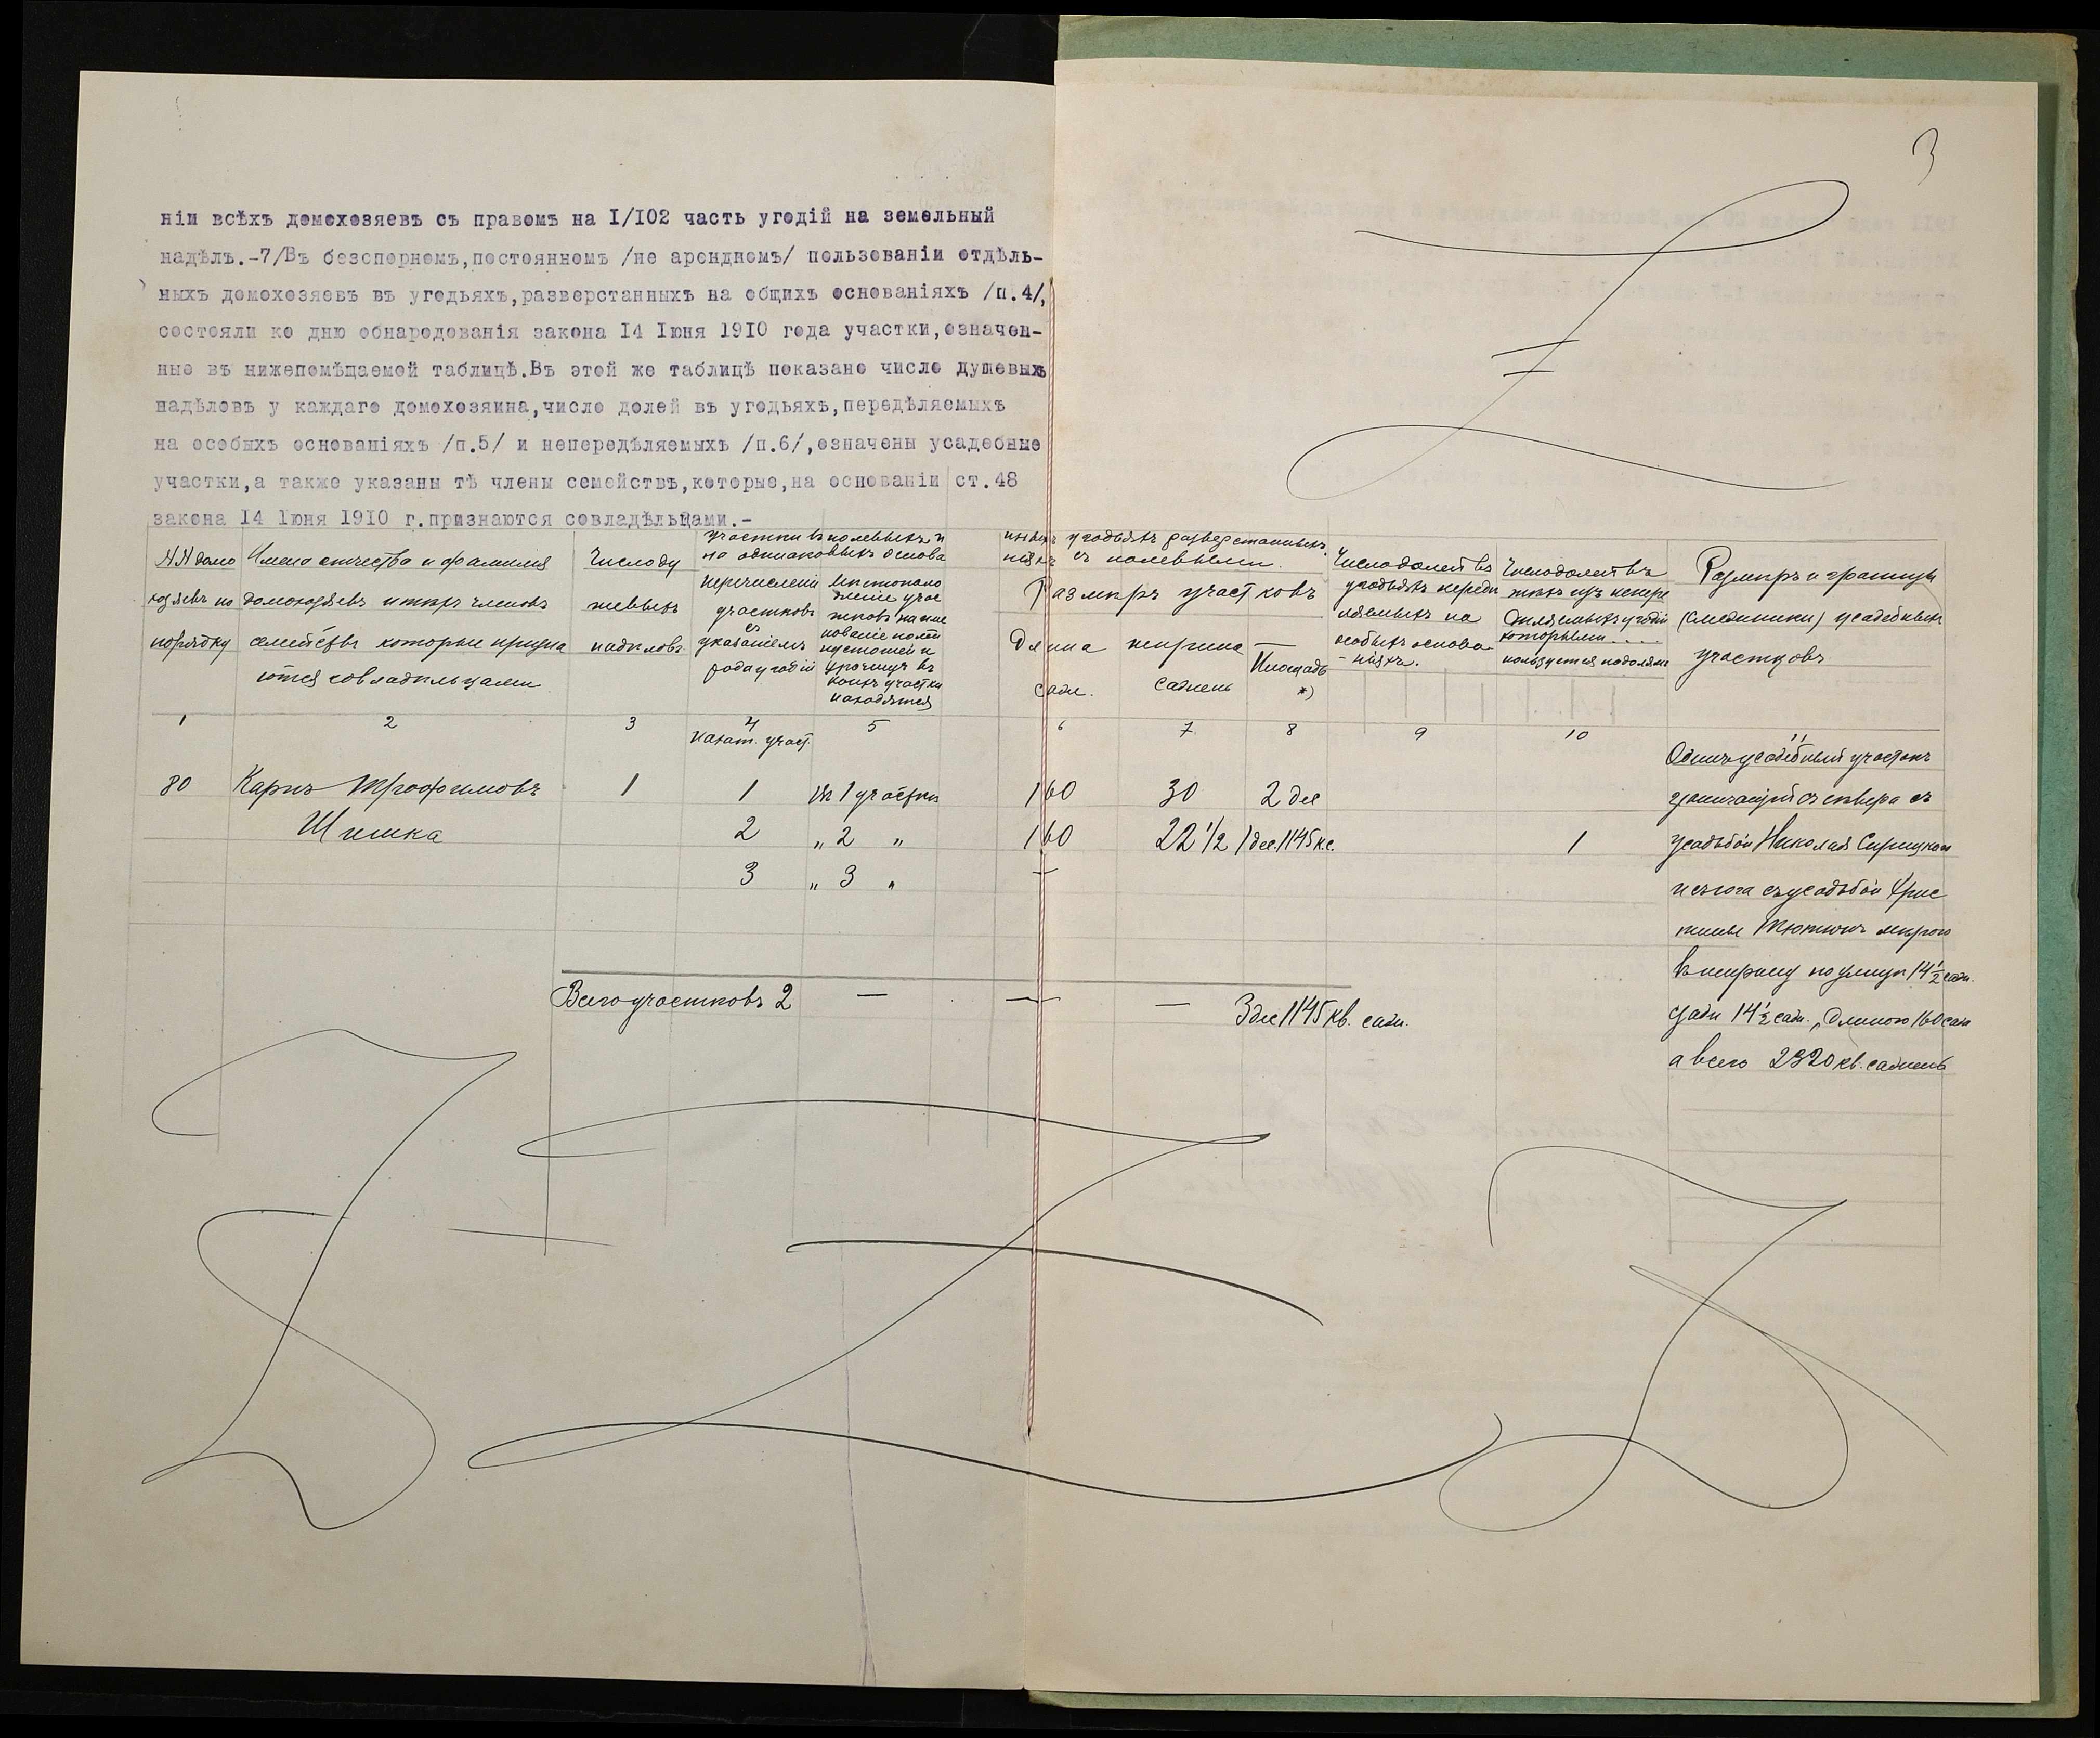 3
ніи всѣхъ домохозяевъ съ правомъ на I/I02 часть угодій на земельный
надѣлъ.-7/Въ безспорномъ,постоянномъ /не арендномъ/ пользованіи отдѣль-
ныхъ домохозяевъ въ угодьяхъ,разверстанныхъ на общихъ основаніяхъ /п.4/,
состояли ко дню обнародованія закона I4 Іюня I9I0 года участки,означен-
ные въ нижепомѣщаемой таблицѣ.Въ этой же таблицѣ показано число душевыхъ
надѣловъ у каждаго домохозяина,число долей въ угодьяхъ,передѣляемыхъ
на особыхъ основаніяхъ /п.5/ и непередѣляемыхъ /п.6/,означены усадебные
участки,а также указаны тѣ члены семействъ,которые,на основаніи ст.48
закона I4 Іюня I9I0 г.признаются совладѣльцами.-
NN домо
хозяевъ по
порядку
Имена отчества и фамилия
домохозяевъ и тѣхъ членовъ
семействъ которые призна
ются совладѣльцами
Число ду
шевыхъ
надѣловъ
Участки въ полевыхъ и иныхъ угодьяхъ разверстанныхъ
на одинаковыхъ основаніяхъ съ полевыми.
перечисленіе
участковъ
съ
указаніемъ
рода угодій
Мѣстополо
женіе учас
тковъ наиме
нованіе полей
пустошей и
урочищъ въ
коихъ участки
находятся
Размѣръ участковъ
Длина ширина Площадь
саж. Сажень *)
Число долей въ
угодьяхъ передѣ
ляемыхъ на
особыхъ основа
-ніяхъ.
Число долей въ
тѣхъ изъ непере
дѣляемыхъ угодій
которыми ....
пользуется подоляме
Размѣръ и границы
(смежники) усадебныхъ
участковъ
1 2 3 4 5 6 7 8 9 10 11
пахат. участ.
80 Карпъ Трофимовъ 1 1 въ 1 участкѣ 160 30 2 дес
Шишка 2 „ 2 „ 160 22 1/2 1 дес. 1145 к.с. 1
3 „ 3 „ —
Одинъ усадебный участокъ
граничащій съ сѣвера съ
усадьбой Николая Сирицкаго
и съ юга съ усадьбой Хрис
тины Тютюнъ мѣрою
въ ширину по улицѣ 14 1/2 саж.
сзади 14 1/2 саж., длиною 160 саж
а всего 2320 кв. сажень
Всего участковъ 2 — — — 3 дес 1145 кв. саж.